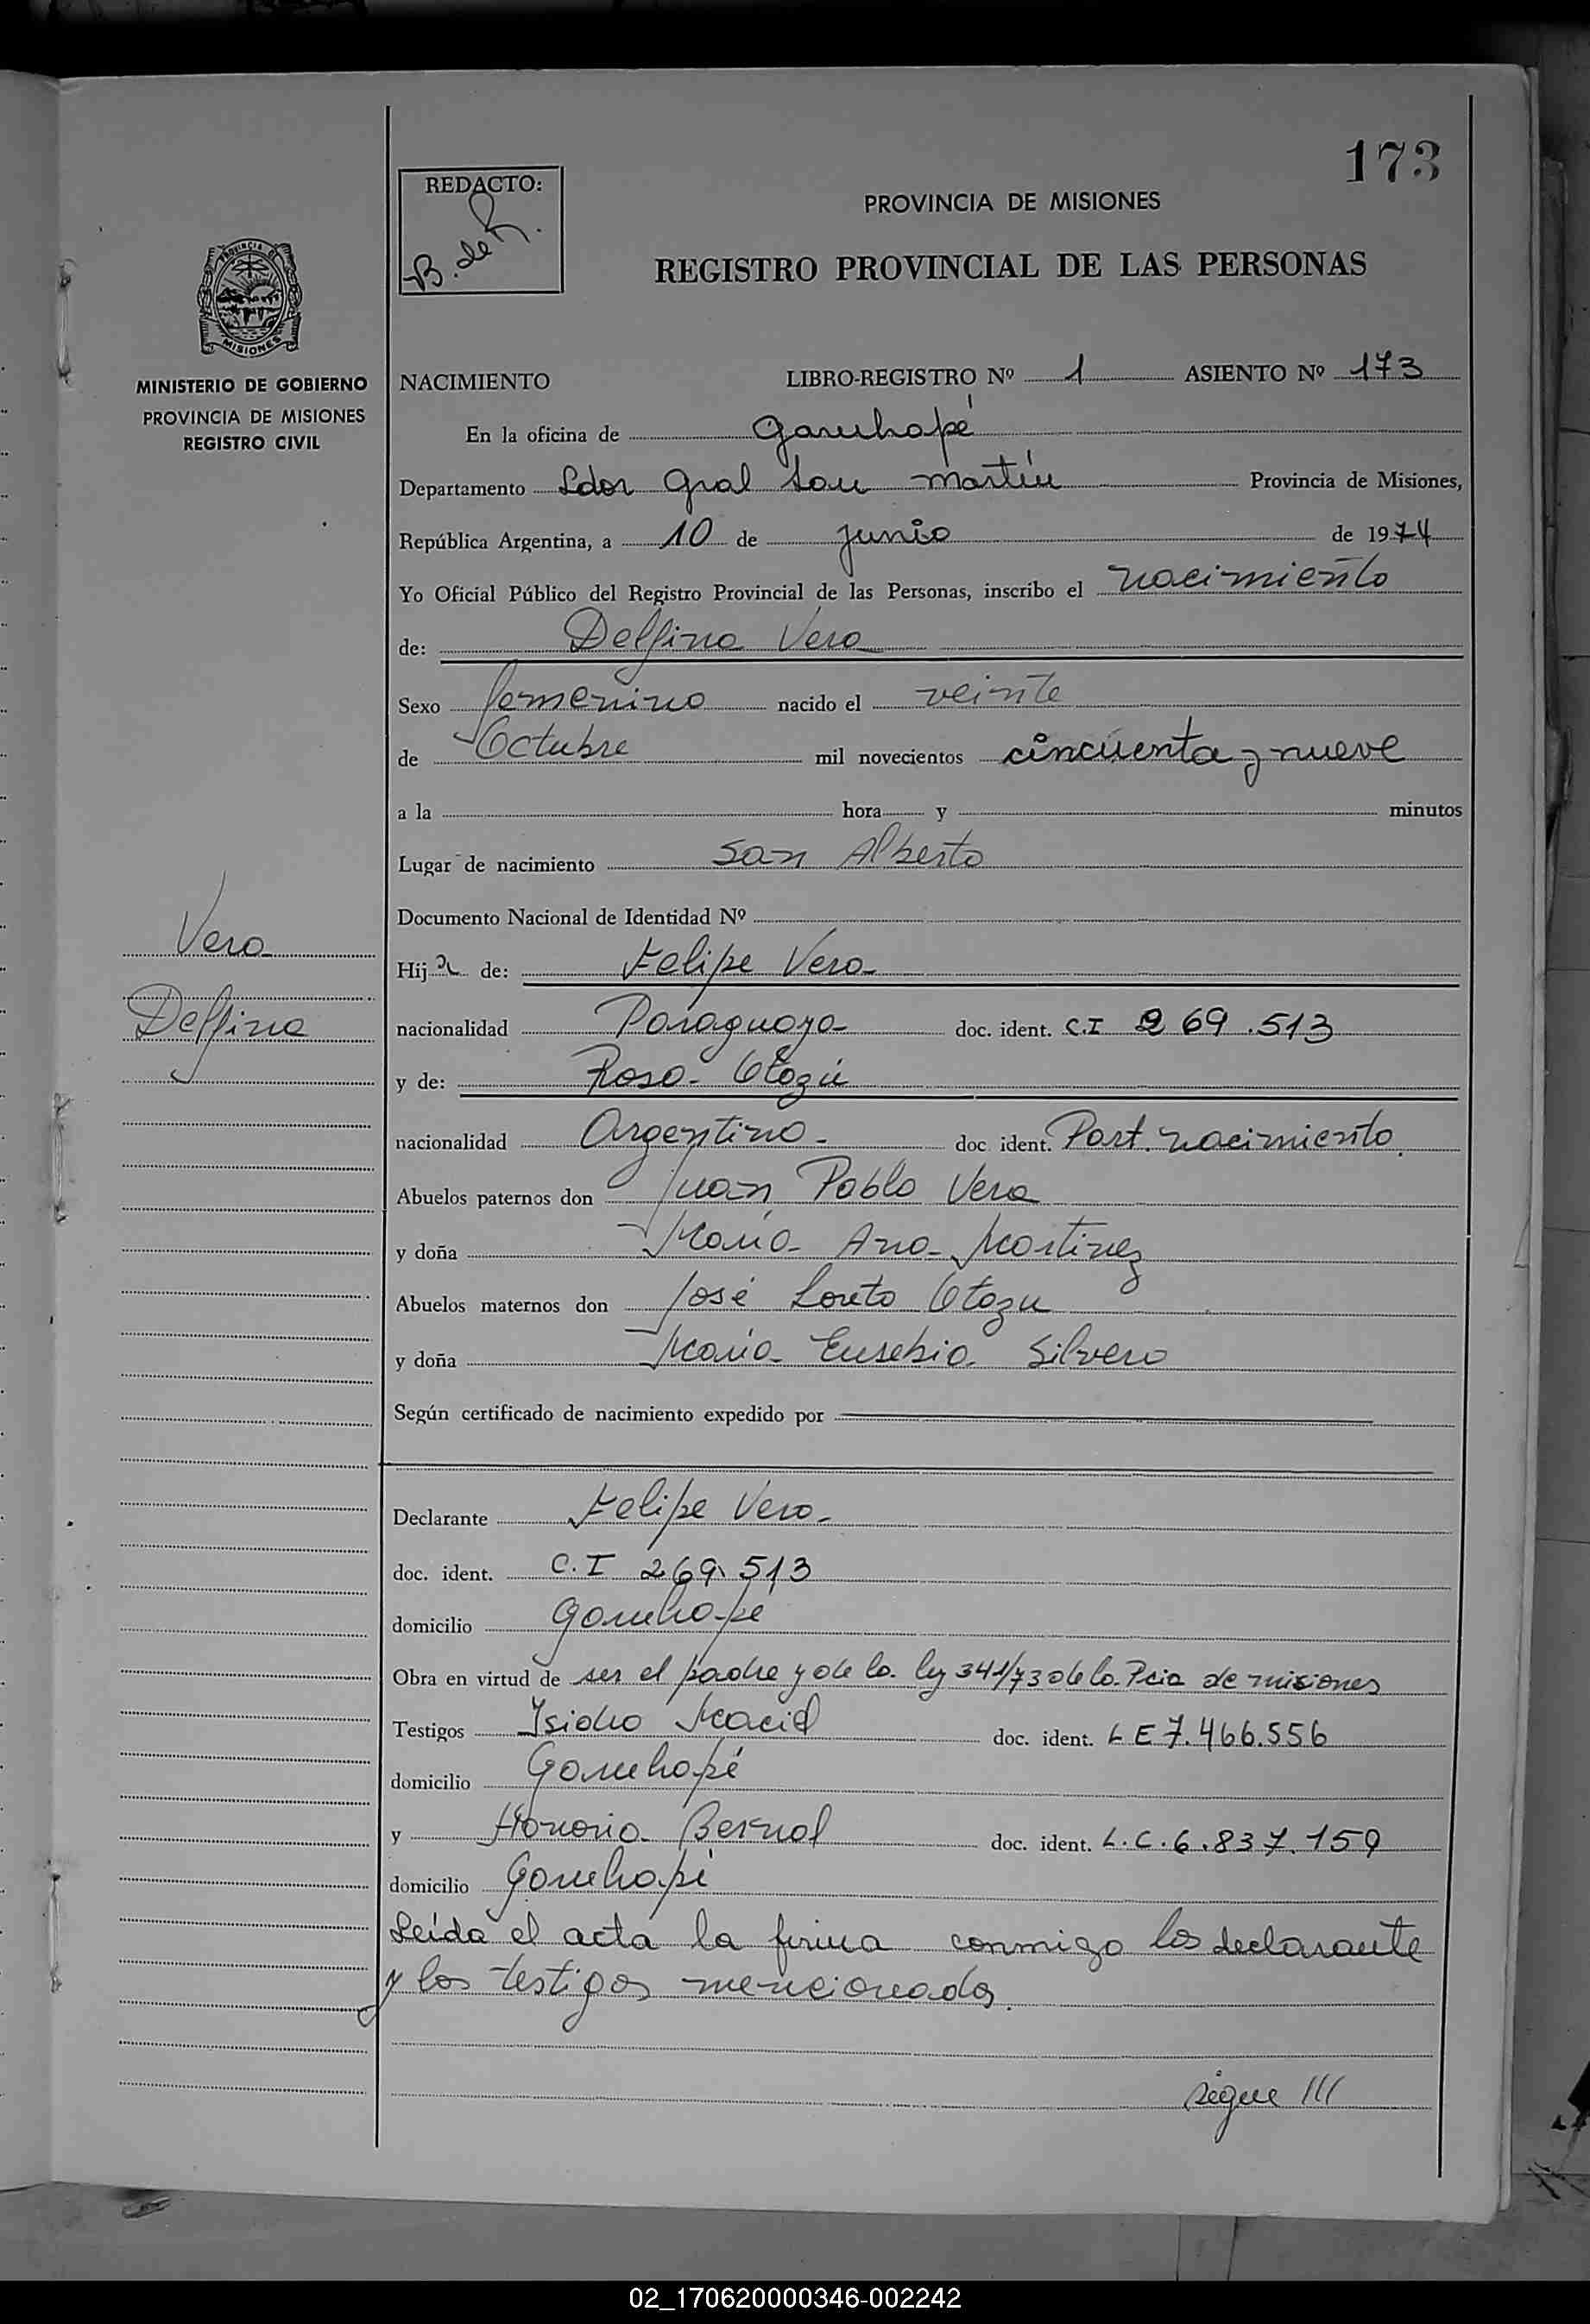 173
REDACTO:
B. de R.
PROVINCIA DE MISIONES
REGISTRO PROVINCIAL DE LAS PERSONAS
PROVINCIA DE
MISIONES
MINISTERIO DE GOBIERNO
PROVINCIA DE MISIONES
REGISTRO CIVIL
NACIMIENTO LIBRO-REGISTRO Nº 1 ASIENTO Nº 173
En la oficina de Garuhapé
Departamento Ldor Gral San Martín Provincia de Misiones,
República Argentina, a 10 de junio de 1974
Yo Oficial Público del Registro Provincial de las Personas, inscribo el nacimiento
de: Delfina Vera
Sexo femenino nacido el veinte
de Octubre mil novecientos cincuenta y nueve
a la hora y minutos
Lugar de nacimiento San Alberto
Documento Nacional de Identidad Nº
Vera
Delfina
Hija de: Felipe Vera
nacionalidad Paraguaya doc. ident. C.I 269.513
y de: Rosa Otazú
nacionalidad Argentina doc. ident. Part. nacimiento.
Abuelos paternos don Juan Pablo Vera
y doña María Ana Martinez
Abuelos maternos don José Loreto Otazu
y doña María Eusebia Silvero
Según certificado de nacimiento expedido por
Declarante Felipe Vera
doc. ident. C.I 269.513
domicilio Garuhapé
Obra en virtud de ser el padre y de la ley 341/73 de la Pcia de misiones
Testigos Isidro Maciel doc. ident. L E 7.466.556
domicilio Garuhapé
y Honoria Bernal doc. ident. L.C. 6.837.159
domicilio Garuhapé
Leída el acta la firma conmigo los declarante
y los testigos mencionados.
sigue ///
02_170620000346-002242